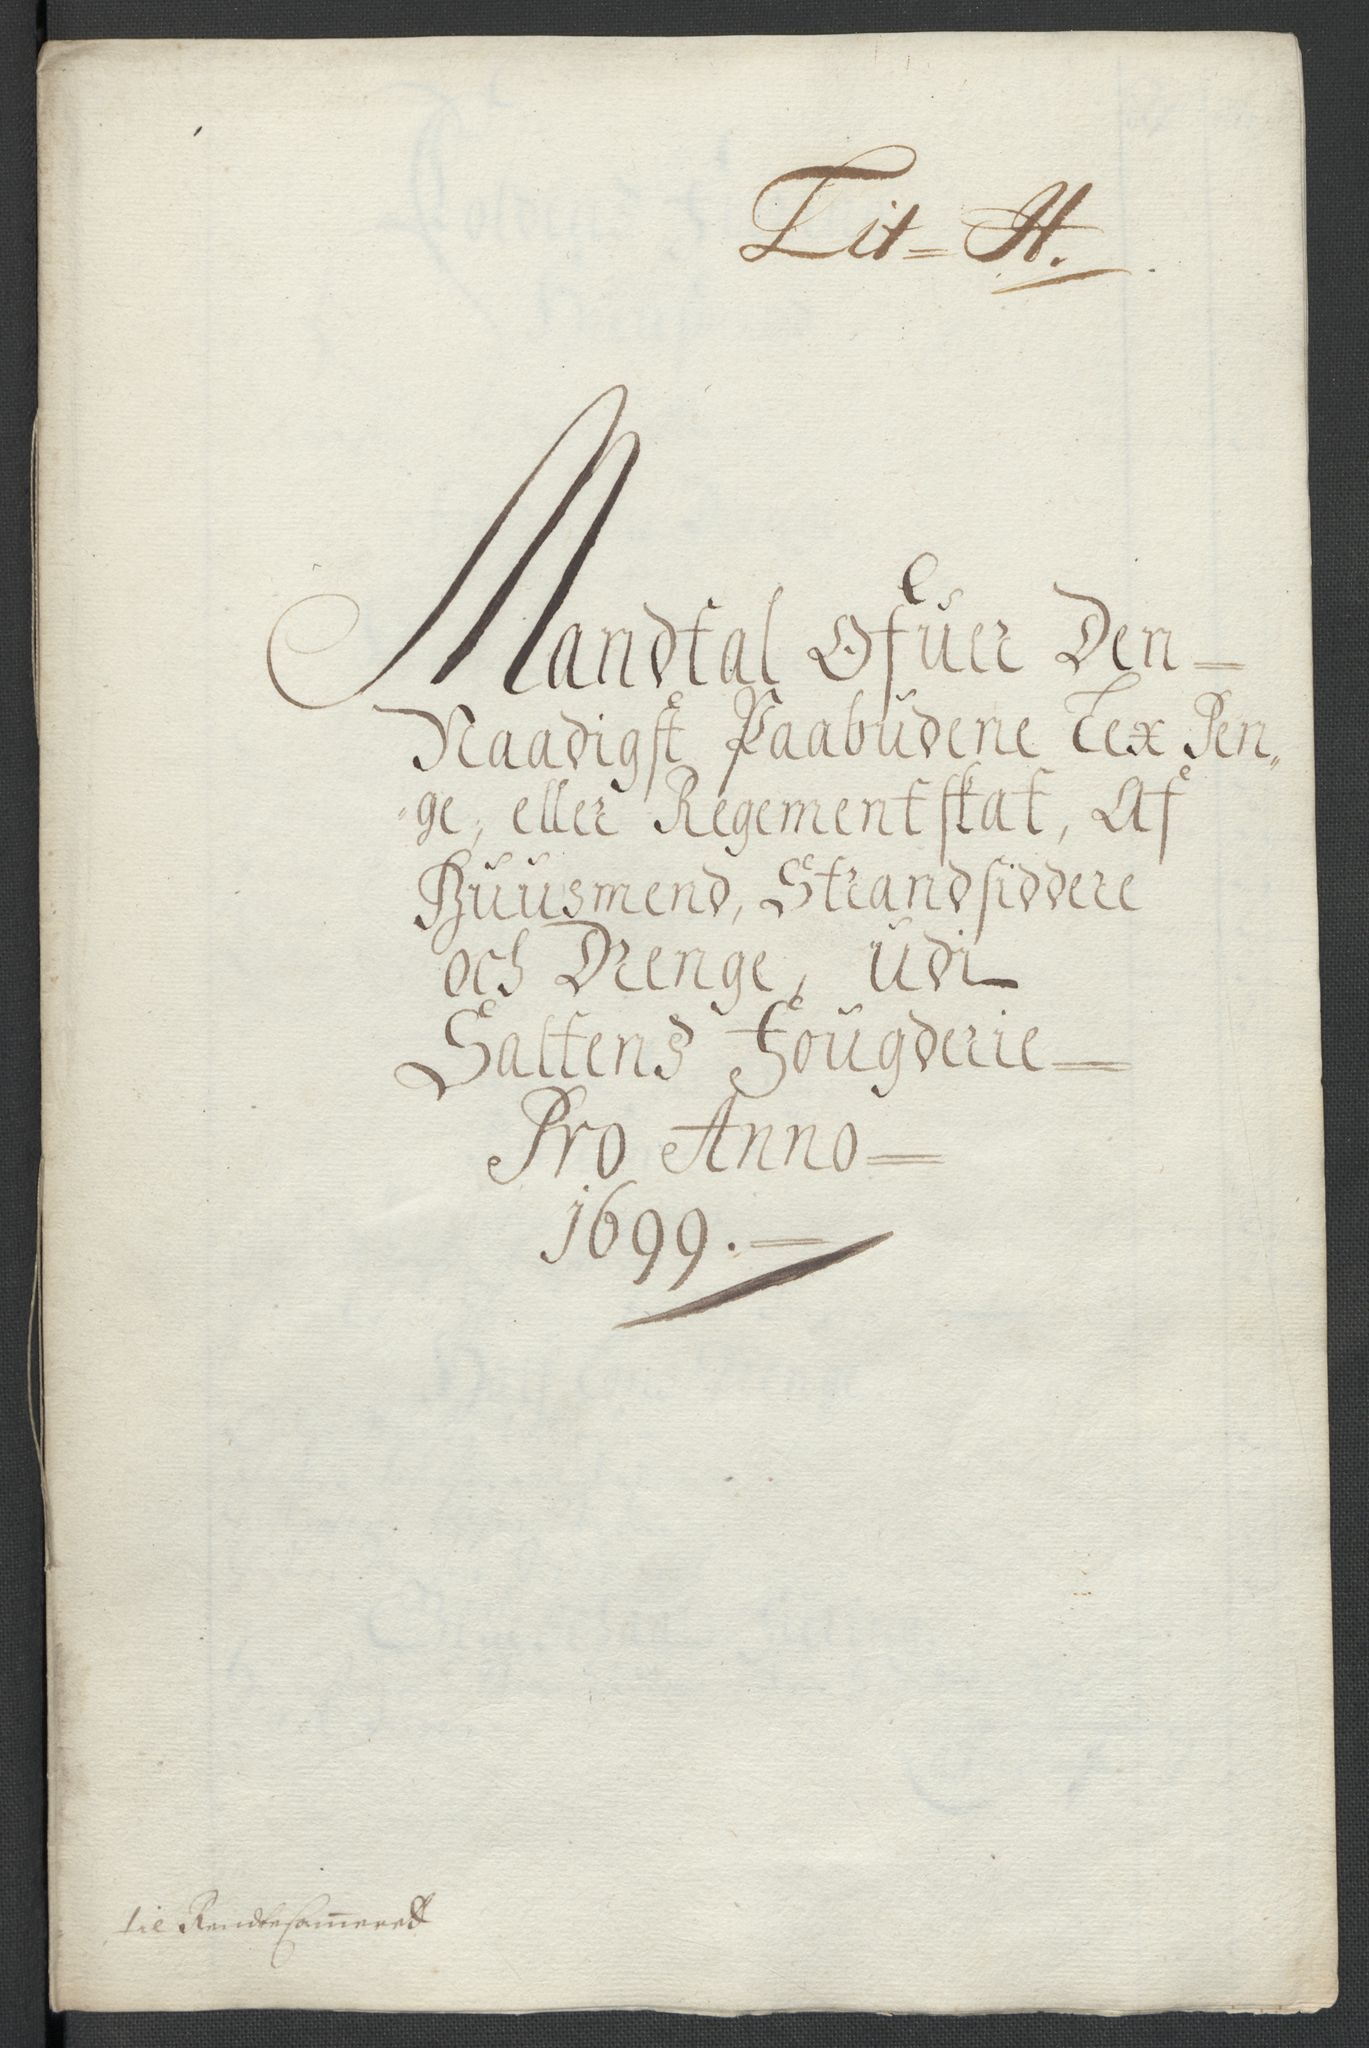 Lit = H.
Mandtal Ofuer Den
Naadigst Paabudene Lex Pen„
„ge, eller Regementskat, Af
Huusmend, Strandsiddere
och Drenge, udi
Saltens Fougderie
Pro Anno
1699.
til Rendtecammeret